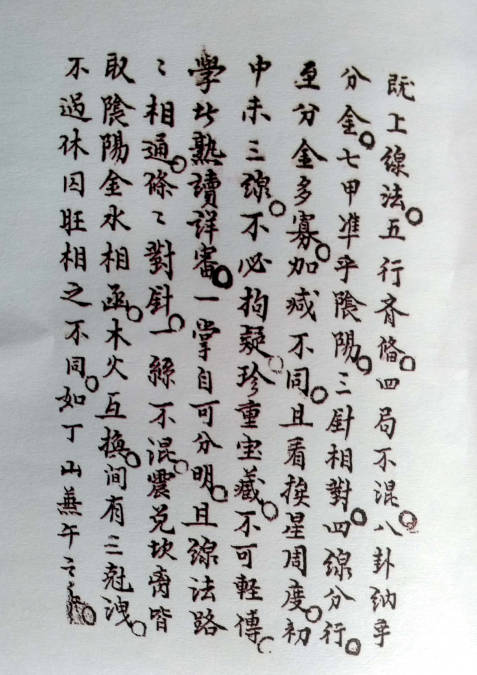 既上線法。五行齐備。四局不混。八卦纳乎
分金。七甲準乎陰陽。三針相對。四線分行。
至分金多寡。加减不同。且看挨星周度。初
中末三線。不必拘疑。珍重宝藏。不可軽傳。
學步熟讀詳審。一掌自可分明。且線法路
〻相通。條〻對針。一絲不混。震兑坎离皆
取陰陽。金水相函。木火互换。间有三尅洩。
不过休囚旺相之不同。如丁山兼午之